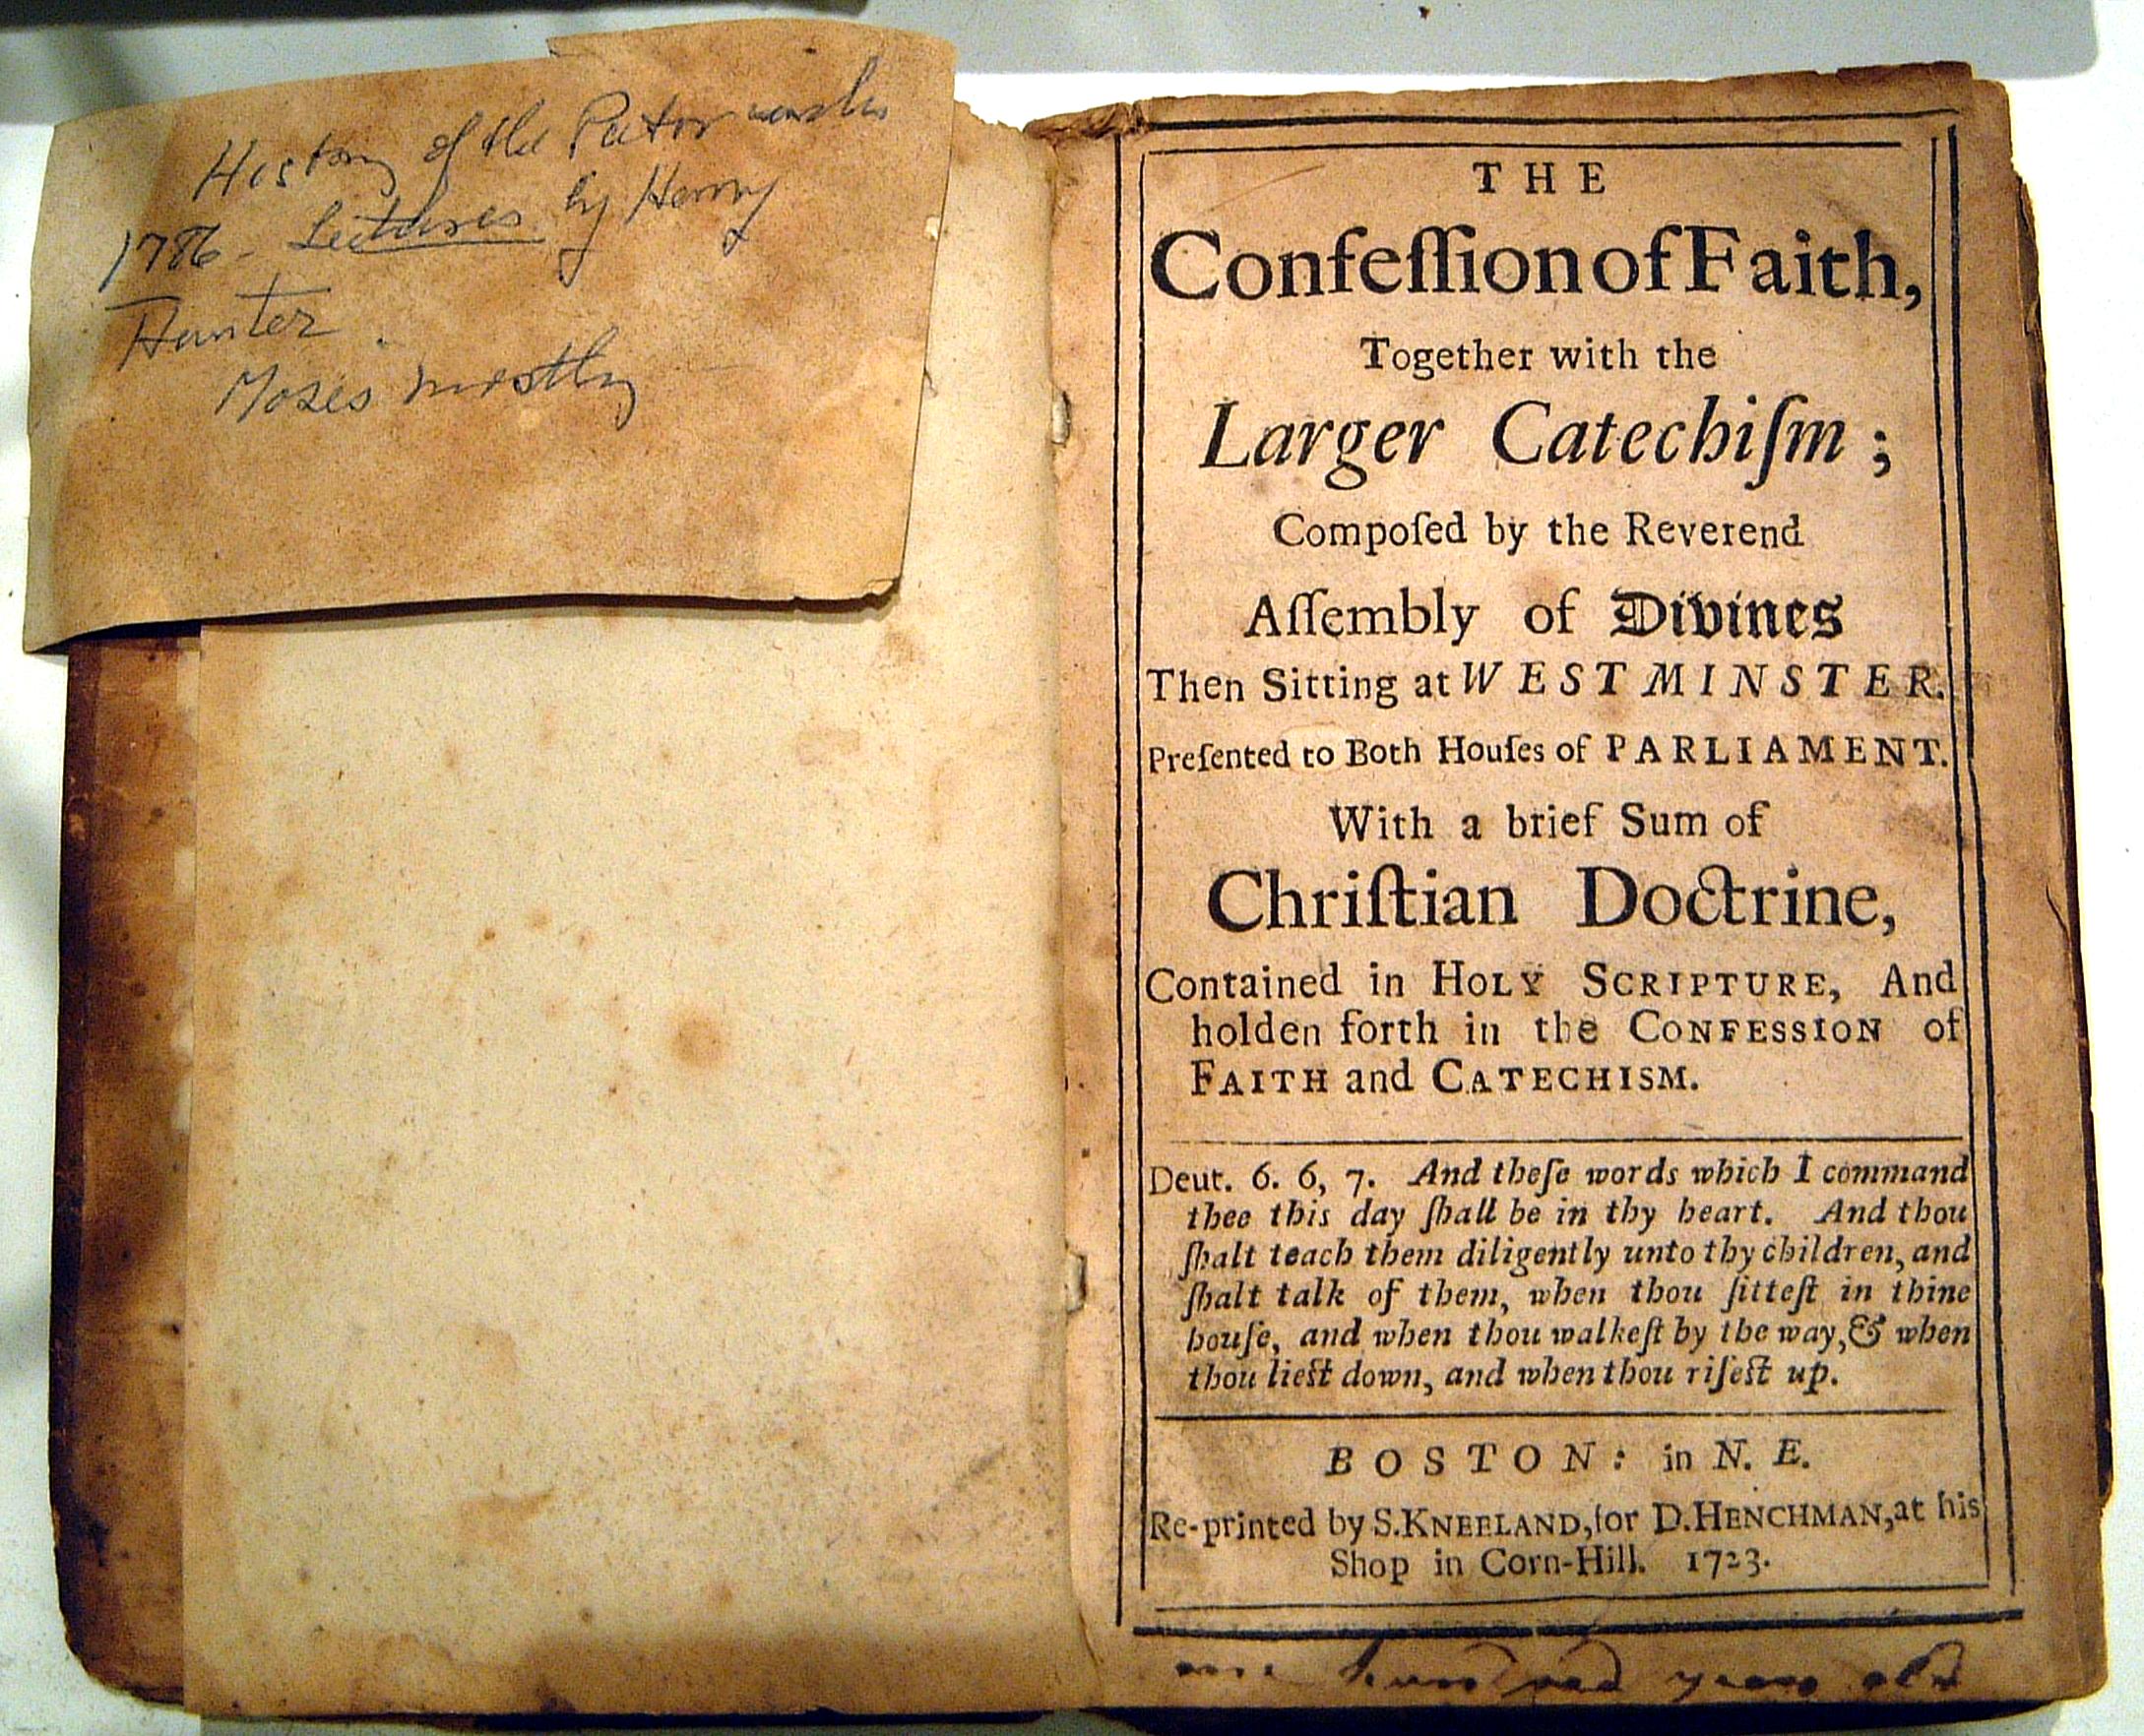 History of the
1786 - Lectures by Henry
Hunter.
Moses mostly
THE
Confeſſion of Faith,
Together with the
Larger Catechiſm;
Compoſed by the Reverend
Aſſembly of Divines
Then Sitting at WESTMINSTER.
Preſented to Both Houſes of PARLIAMENT.
With a brief Sum of
Chriſtian Doctrine,
Contained in HOLY SCRIPTURE, And
holden forth in the CONFESSION of
FAITH and CATECHISM.
Deut. 6. 6, 7. And theſe words which I command
thee this day ſhall be in thy heart. And thou
ſhalt teach them diligently unto thy children, and
ſhalt talk of them, when thou ſitteſt in thine
houſe, and when thou walkeſt by the way, & when
thou lieſt down, and when thou riſeſt up.
BOSTON: in N. E.
Re-printed by S. KNEELAND, for D. HENCHMAN, at his
Shop in Corn-Hill. 1723.
one hundred years old